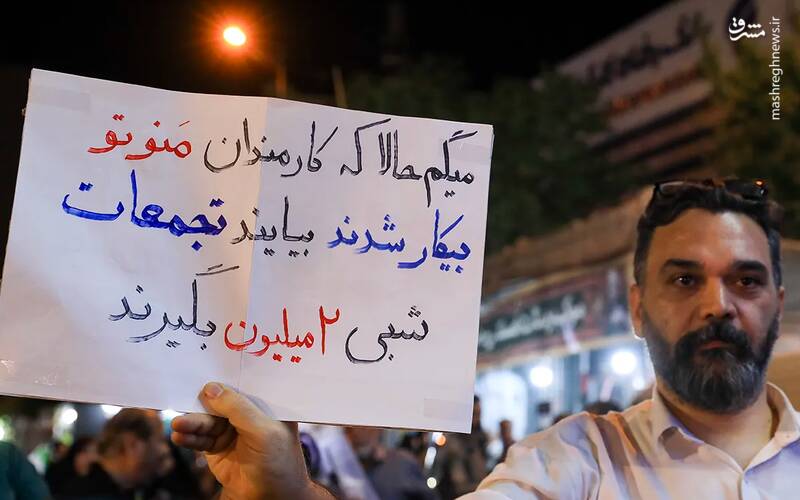 میگم حالا که کارمندان مَنوتو
بیکار شدند بیایند تجمعات
شبی ۲ میلیون بگیرند
مشرق
mashreghnews.ir